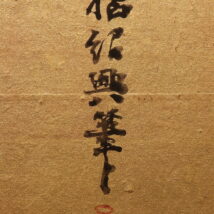 紹興筆